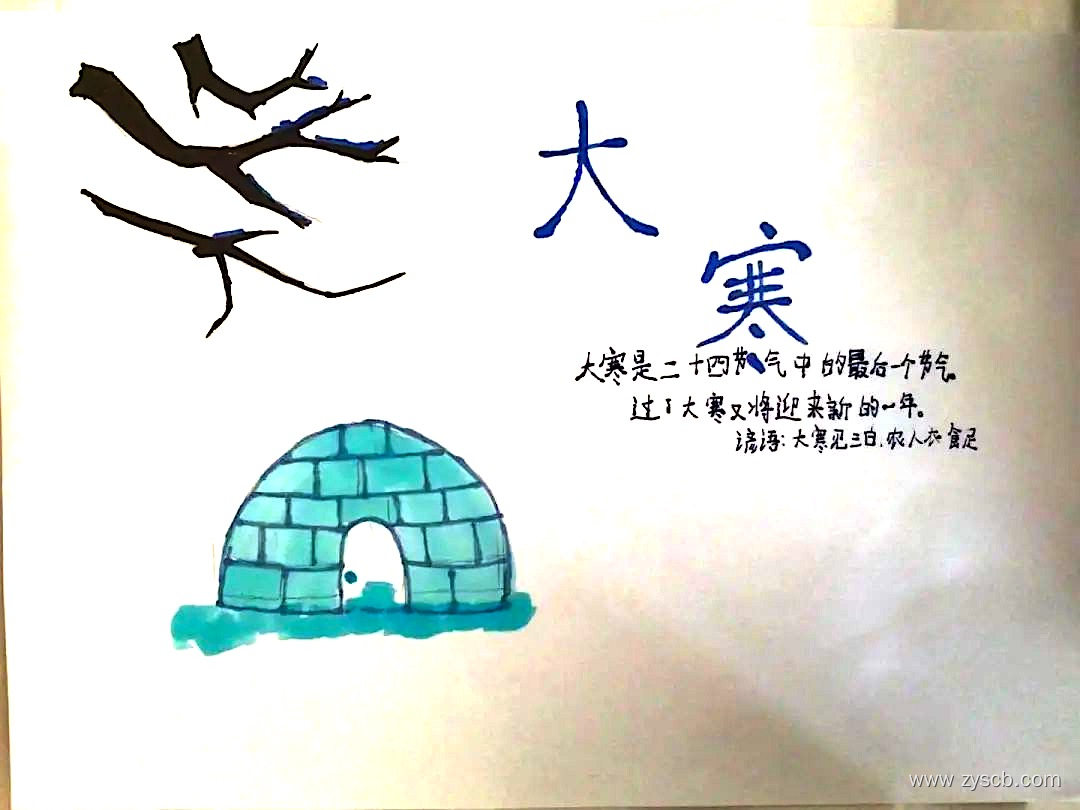 大
寒
大寒是二十四节气中的最后一个节气。
过了大寒又将迎来新的一年。
谚语:大寒见三白,农人衣食足
www.zyscb.com